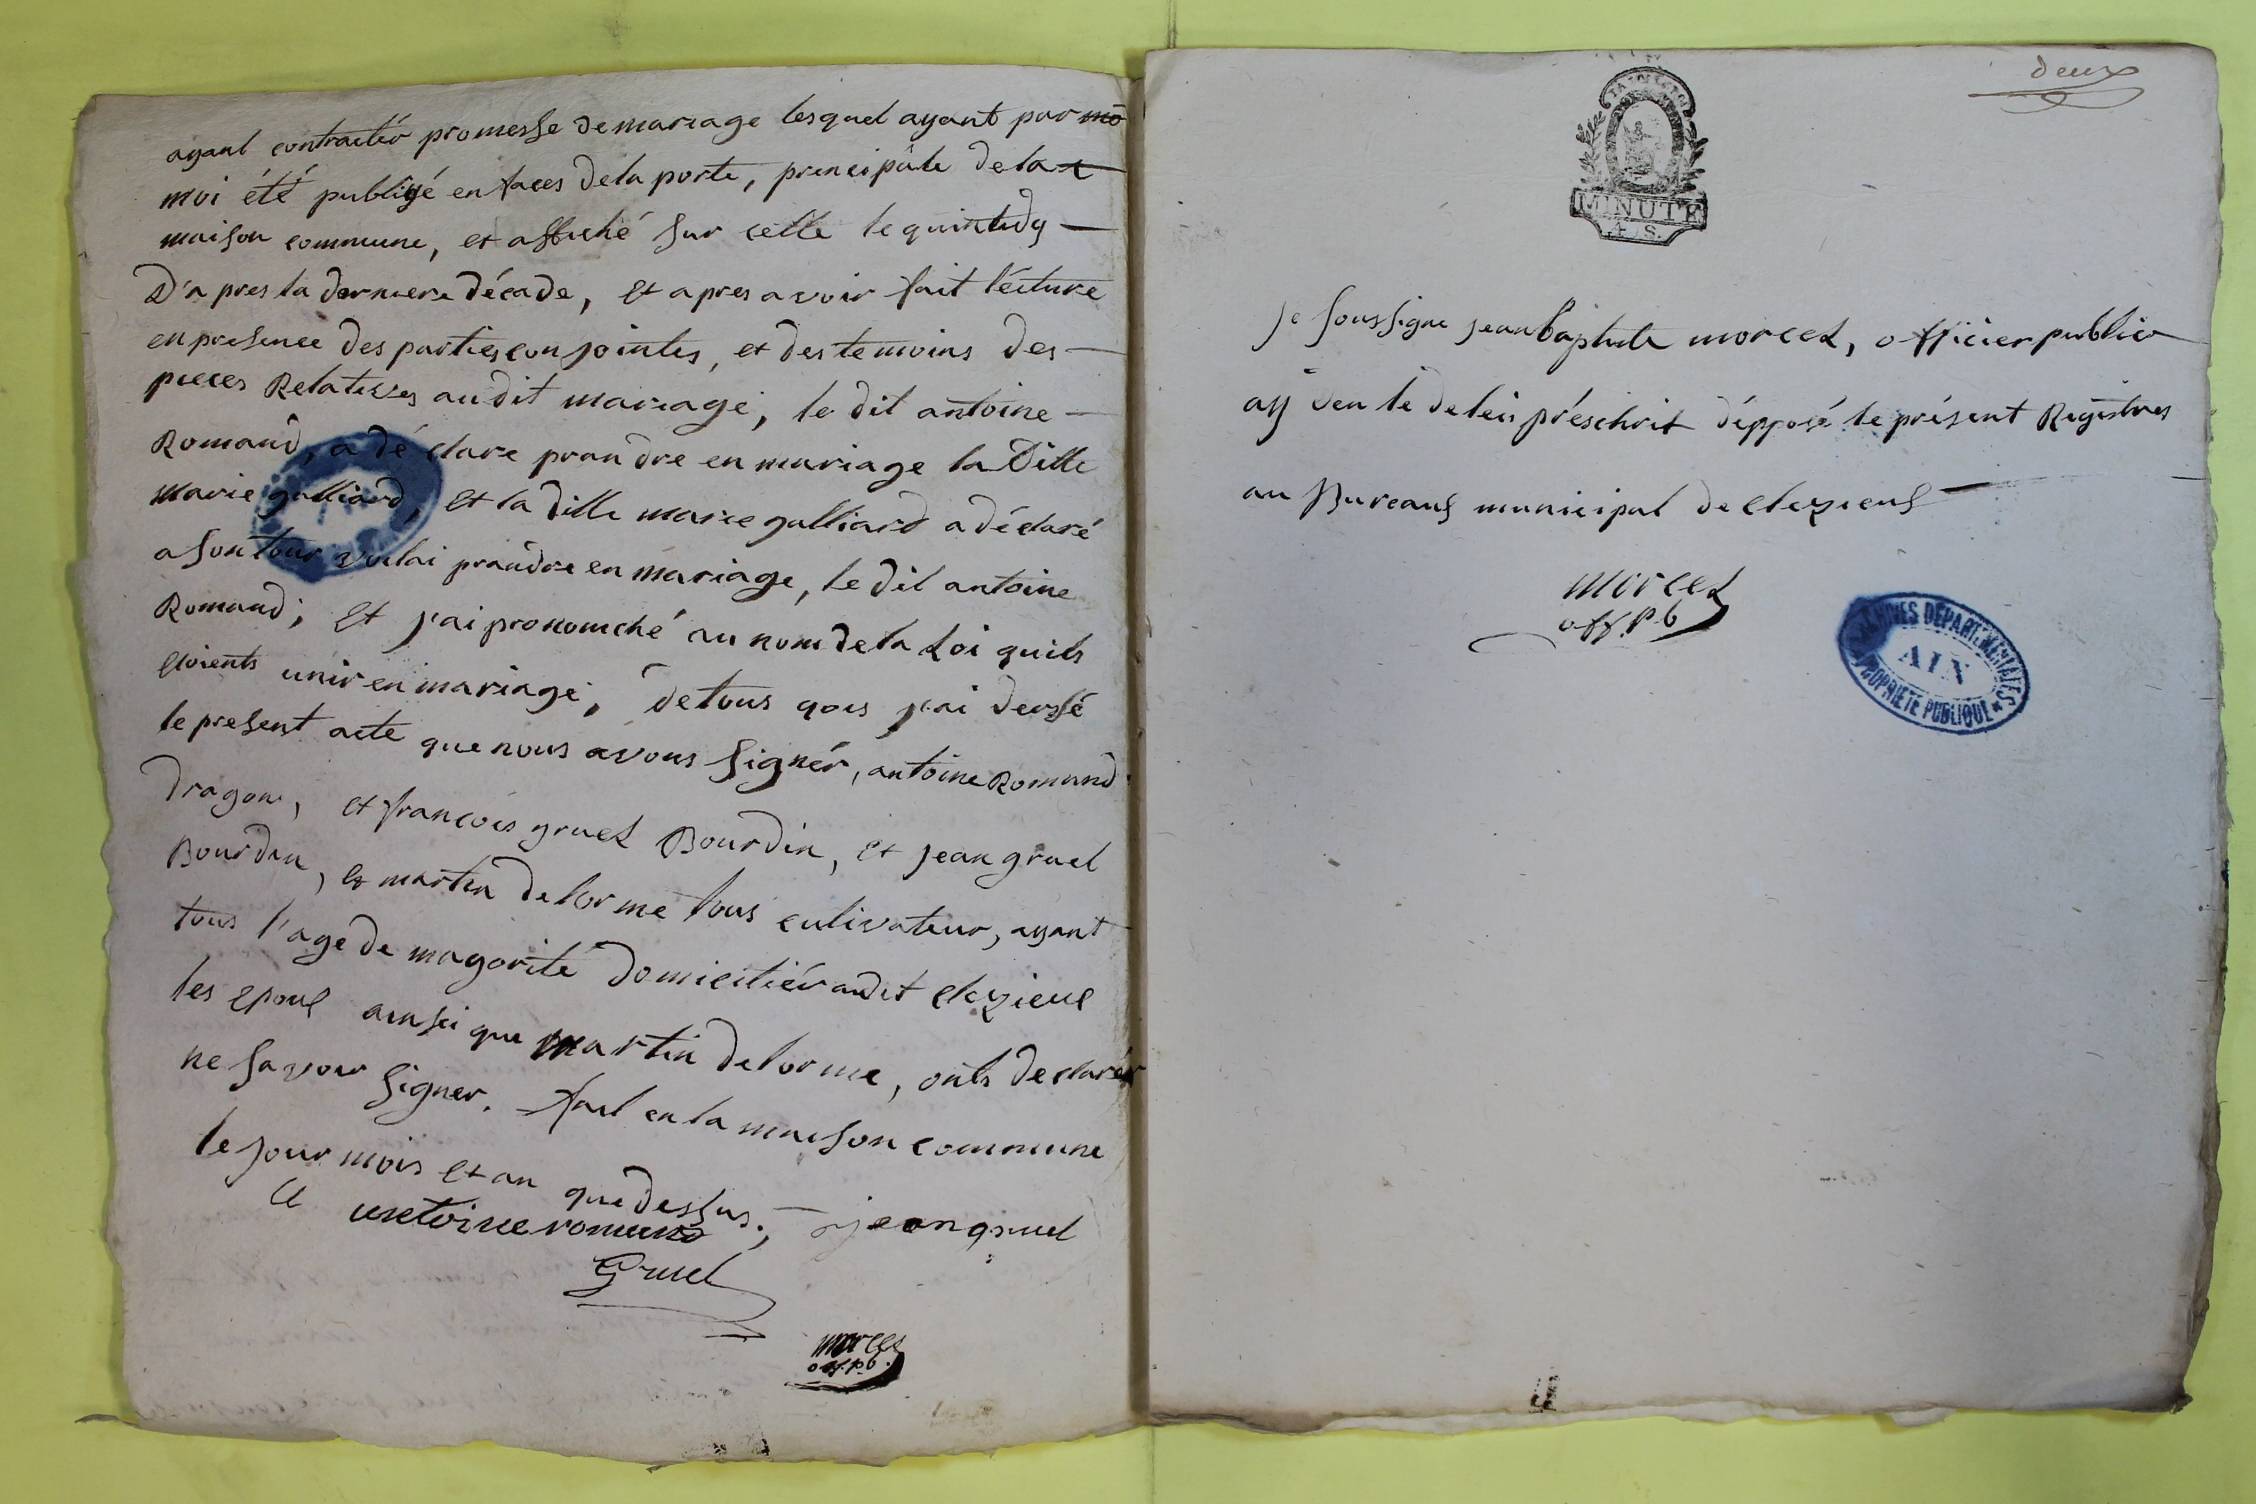 ayant contractér promesse de mariage lesquel ayant par mo
moi été publiyé en faces de la porte, principâle de la
maison commune, et affiché sur celle le quintidy
D'apres la derniere décade, et apres avoir fait lécture
en presence des parties conjointes, et des temoins des
pieces Relatives audit mariage, le dit antoine
Romand, a déclare prandre en mariage la Ditte
marie galliard, et la ditte marie galliard a déclaré
a son tour voulai prandre en mariage, le dit antoine
Romand; et j'ai pronomché au nom de la Loi quils
etoients unir en mariage, de tous qois j'ai dersé
le present acte que nous avons signér, antoine Romand
dragon, et francois gruel Bourdin, et jean gruel
Bourdin, et martin delorme tous culivateur, ayant
tous l'age de magorité domiciliér audit cleyzieus
les epous ainsi que martin delorme, onts declarér
ne savoir signer. fait en la maison commune
le jour mois et an que dessus.
antoine romand jean gruel
Gruel
morcel
off. pb.
deux
MINUTE
Je soussigne jean baptiste morcel, officier public
ay den le delai préschrit dépposé le présent Registres
au Bureaus municipal de cleyzieus
morcel
off. pb
ARCHIVES DÉPARTEMENTALES
AIN
PROPRIÉTÉ PUBLIQUE